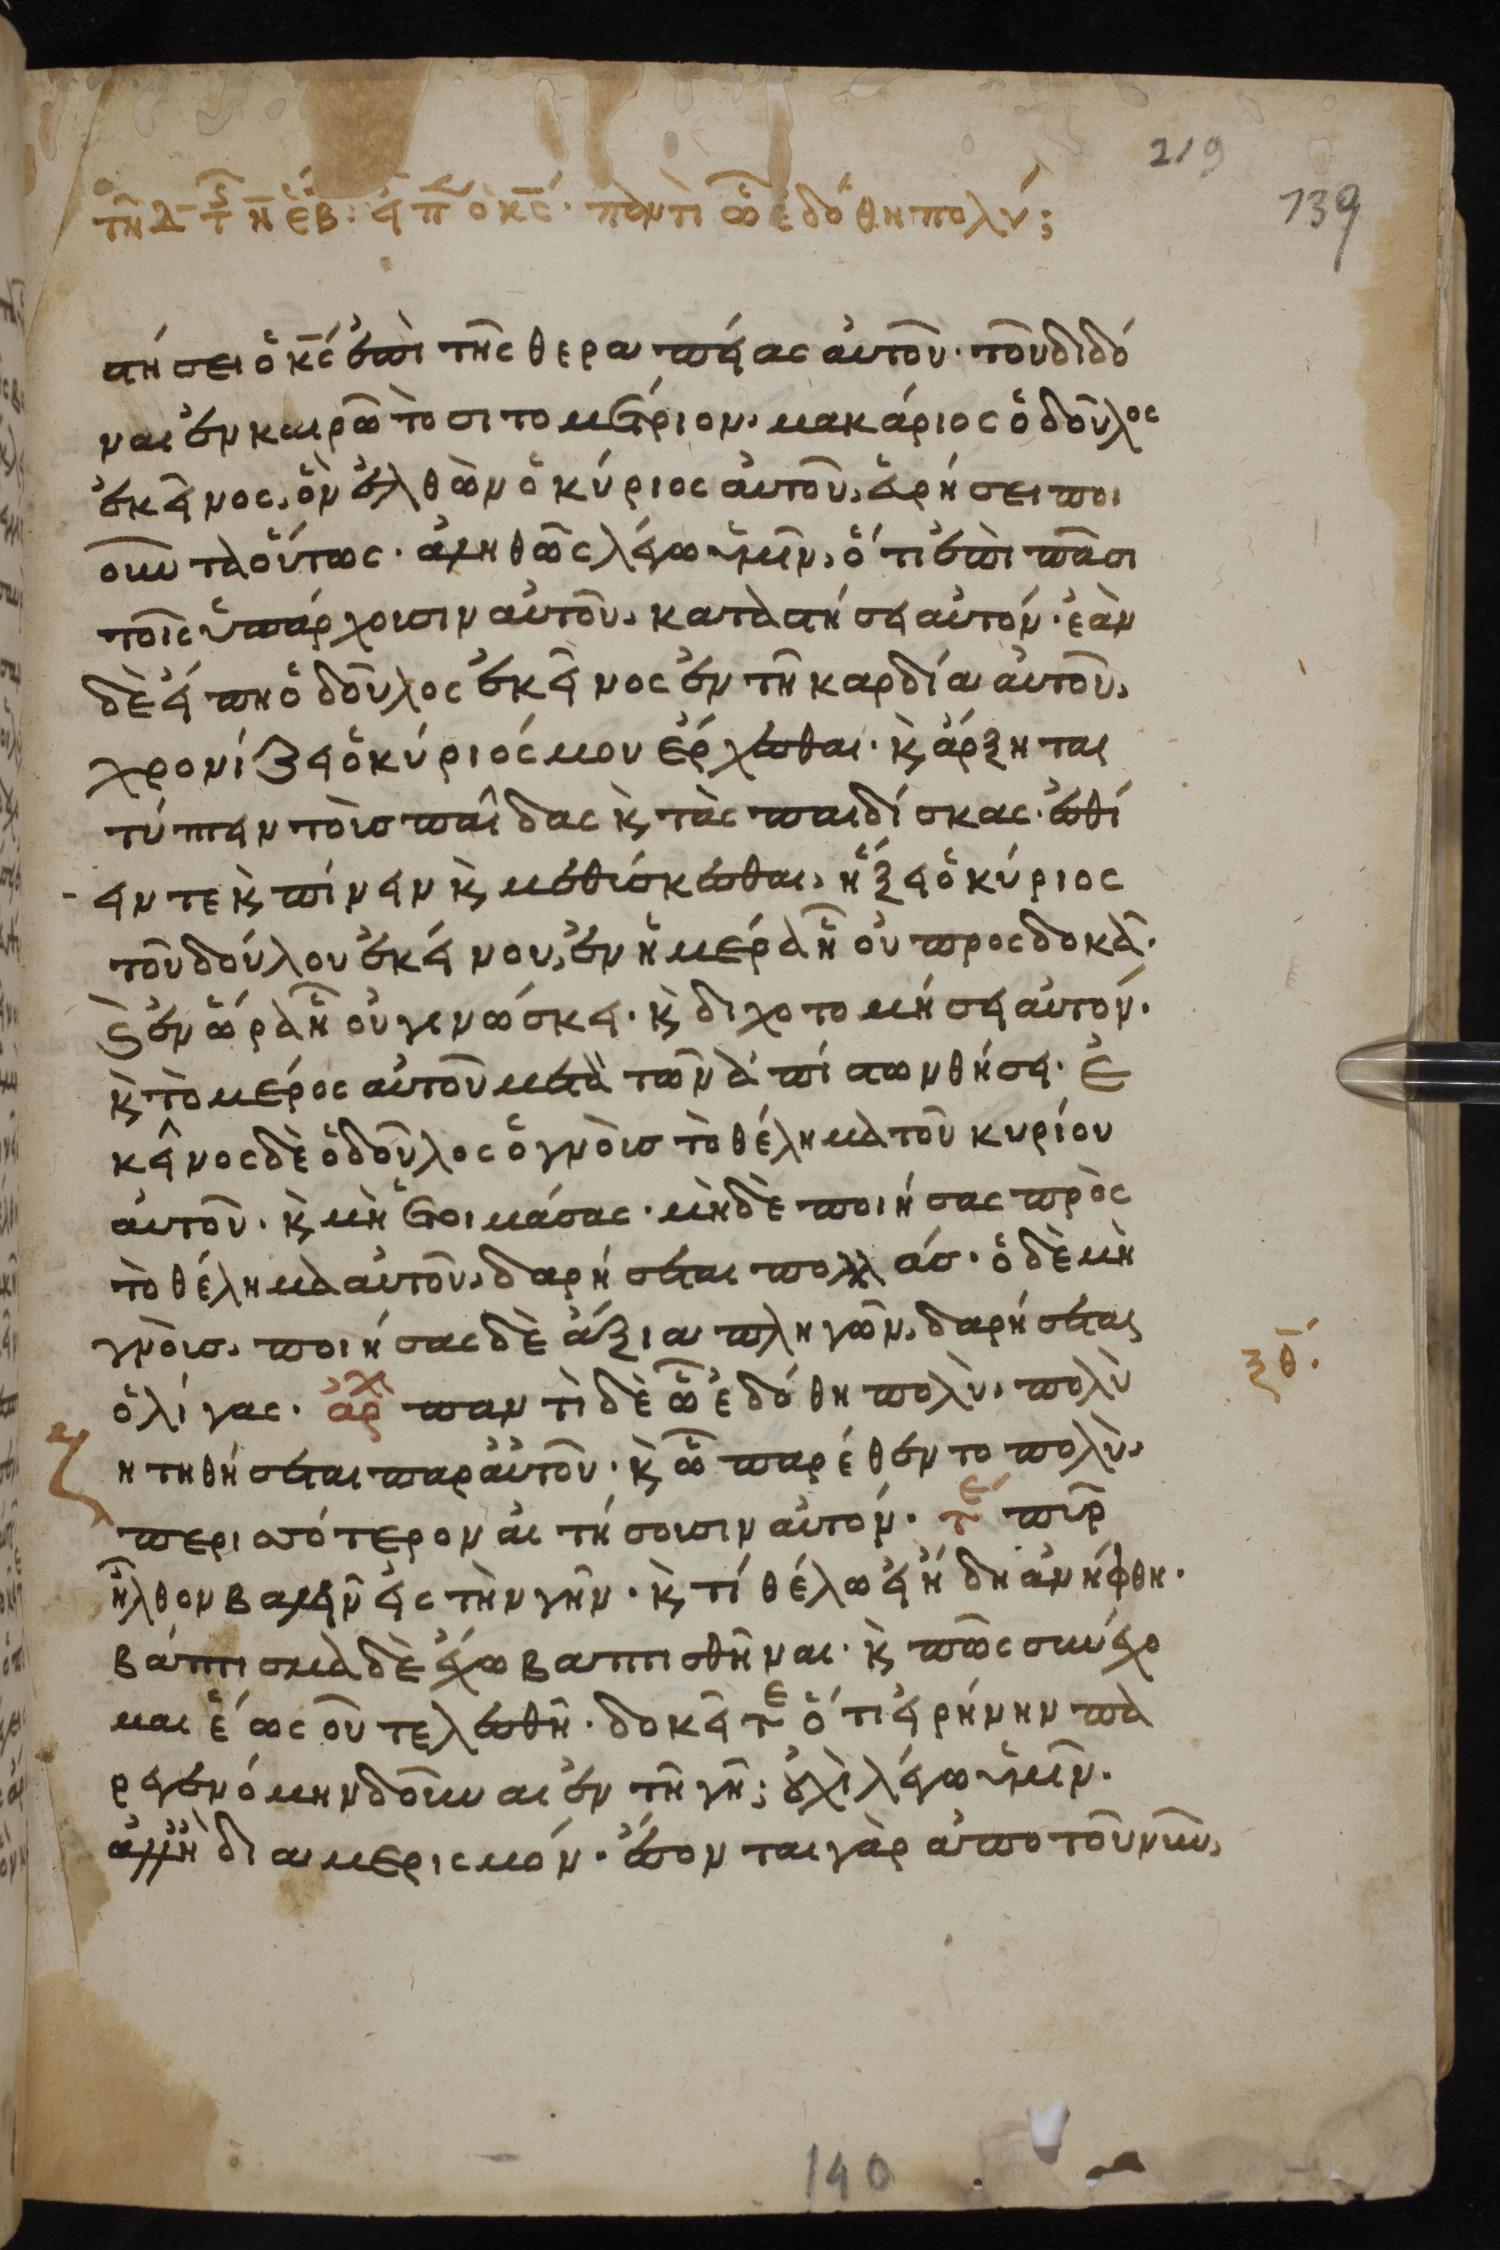 219
139
τῆ δ τ͂ς τ η ἑβ: εἶπ ὁ κ̅ς· παντὶ ὧ ἐδόθη πολύ;
στήσει ὁ κ̅ς ἐπὶ τῆς θεραπείας αὐτοῦ· τοῦ διδό
ναι ἐν καιρῶ τὸ σιτομέτριον· μακάριος ὁ δοῦλος
ἐκεῖνος, ὃν ἐλθὼν ὁ κύριος αὐτοῦ, εὑρήσει ποι
οῦντα οὕτως· ἀληθῶς λέγω ὑμῖν, ὅτι ἐπὶ πᾶσι
τοῖς ὑπάρχουσιν αὐτοῦ, καταστήσει αὐτόν· ἐὰν
δὲ εἴπη ὁ δοῦλος ἐκεῖνος ἐν τῆ καρδία αὐτοῦ,
χρονίζει ὁ κύριός μου ἔρχεσθαι· κ̀ ἄρξηται
τύπτειν τοὺς παῖδας κ̀ τὰς παιδίσκας· ἐσθί
ειν τε κ̀ πίνειν κ̀ μεθύσκεσθαι, ἥξει ὁ κύριος
τοῦ δούλου ἐκείνου, ἐν ἡμέρα ἧ οὐ προσδοκᾶ·
κ̀ ἐν ὥρα ἧ οὐ γινώσκει· κ̀ διχοτομήσει αὐτόν·
κ̀ τὸ μέρος αὐτοῦ μετὰ τῶν ἀπίστων θήσει· ἐ
κεῖνος δὲ ὁ δοῦλος ὁ γνοὺς τὸ θέλημα τοῦ κυρίου
αὐτοῦ· κ̀ μὴ ἑτοιμάσας· μηδὲ ποιήσας πρὸς
τὸ θέλημα αὐτοῦ, δαρήσεται πολλάς· ὁ δὲ μὴ
γνοὺς, ποιήσας δὲ ἄξια πληγῶν, δαρήσεται
ὀλίγας· ἀρχ παντὶ δὲ ὧ ἐδόθη πολὺ, πολὺ
ξθ̅.
ητηθήσεται παρ αὐτοῦ· κ̀ ὧ παρέθεντο πολὺ,
περισσότερον αἰτήσουσιν αὐτόν· τέ πῦρ
ἦλθον βαλεῖν εἰς τὴν γῆν· κ̀ τί θέλω εἰ ἤδη ἀνήφθη·
βάπτισμα δὲ ἔχω βαπτισθῆναι· κ̀ πῶς συνέχο
μαι ἕως οὗ τελεσθῆ· δοκεῖτε ὅτι εἰρήνην πα
ρεγενόμην δοῦναι ἐν τῆ γῆ; οὐχὶ λέγω ὑμῖν·
ἀλλ' ἢ διαμερισμόν· ἔσονται γὰρ ἀπο τοῦ νῦν,
140